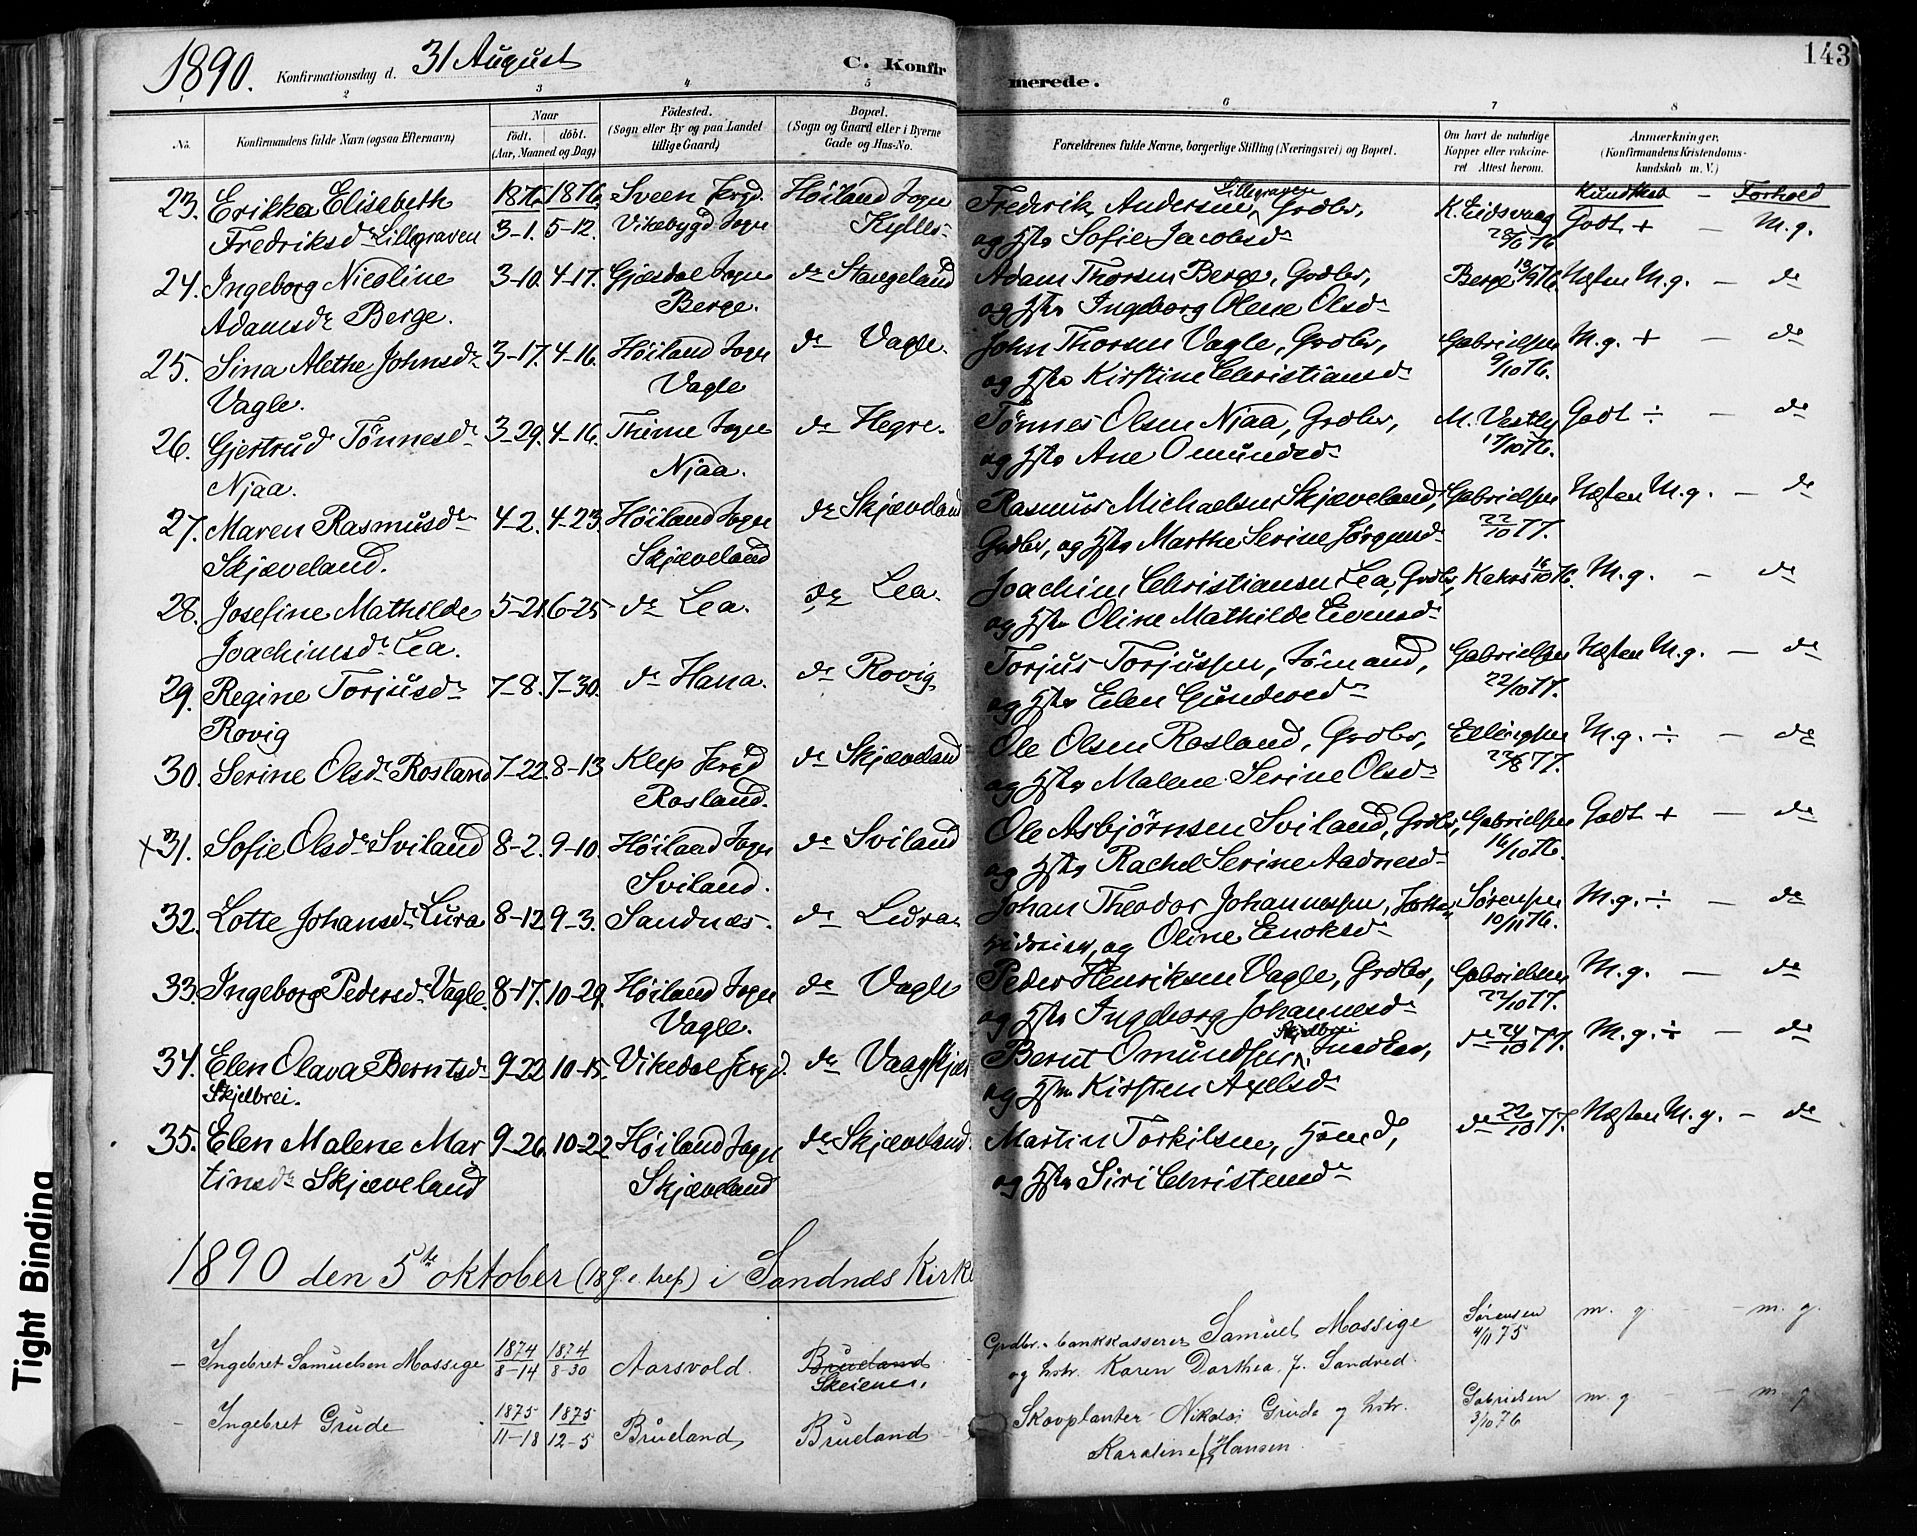 1890. Konfirmationsdag d. 31 August C. Konfirmerede. 143
2 3 4 5 6 7 8
No. Konfirmandens fulde Navn (ogsaa Efternavn) Naar født, døbt. (Aar, Maaned og Dag) Fødested. (Sogn eller By og paa Landet tillige Gaard) Bopæl. (Sogn og Gaard eller i Byerne Gade og Hus-No. Forældrenes fulde Navne, borgerlige Stilling (Næringsvei) og Bopæl. Om havt de naturlige Kopper eller vakcineret Attest herom. Anmærkninger, (Konfirmandens Kristendomskundskab m. V.)
Kundskab — Forhold
23. Erikka Elisebeth 1876 1876 Sveen Prgd. Høiland Sogn Frederik Andersen Lillegraven, Grdbr, K. Eidsvaag Godt + — M. g.
Fredriksdr Lillegraven 3-1. 5-12. Vikebygd Sogn Kylles- og Hstr Sofie Jacobsdr
24. Ingeborg Nicoline 3-10. 4-17. Gjesdal Sogn do Stangeland Adam Thorsen Berge, Grdbr, Berge 13/9 76. Næsten M. g. — do
Adamsdr Berge. Berge. og Hstr Ingeborg Olene Olsdr
25. Sina Alethe Johnsdr 3-17. 4-16. Høiland Sogn do Vagle. John Thorsen Vagle, Grdbr, Gabrielsen M. g. + — do
Vagle. Vagle og Hstr Kirstine Christiansdr 9/10 76.
26. Gjertrud Tønnesdr 3-29. 4-16. Thime Sogn do Hegre. Tønnes Olsen Njaa, Grdbr, M. Vestly Godt ÷ — do
Njaa. Njaa. og Hstr Ane Omundsdr 17/10 76.
27. Maren Rasmusdr 4-2. 4-23. Høiland Sogn do Skjæveland Rasmus Michaelsen Skjæveland, Gabrielsen Næsten M. g. — do
Skjæveland. Skjæveland Grdbr, og Hstr Marthe Serine Jørgensdr 22/10 77.
28. Josefine Mathilde 5-21. 6-25 do Lea. do Lea. Joachim Christiansen Lea, Grdbr, 16/10 76. M. g. — do
Joachimsdr Lea. og Hstr Oline Mathilde Evensdr
29. Regine Torjusdr 7-8. 7-30. do Hana. do Rovig. Torjus Torjussen, Sømand, Gabrielsen Næsten M. g. — do
Rovig og Hstr Elen Gundersdr 22/10 77.
30. Serine Olsdr Rosland 7-22 8-13 Klep Prgd do Skjæveland Ole Olsen Rosland, Grdbr, Ellingsen M. g. ÷ — do
Rosland. og Hstr Malene Serine Olsdr 22/8 77.
x 31. Sofie Olsdr Sviland 8-2. 9-10. Høiland Sogn do Sviland Ole Asbjørnsen Sviland, Grdbr, Gabrielsen Godt + — do
Sviland. og Hstr Rachel Serine Aadnesdr 16/10 76.
32. Lotte Johansdr Lura 8-12 9-3. Sandnæs. do Ledra. Johan Theodor Johannessen, Sørensen M. g. ÷ — do
og Oline Enoksdr 10/11 76.
33. Ingeborg Pedersdr Vagle. 8-17. 10-29. Høiland Sogn do Vagle Peder Henriksen Vagle, Grdbr, Gabrielsen M. g. — do
Vagle. og Hstr Ingeborg Johannesdr 22/10 77.
34. Elen Olava Berntsdr 9-22 10-15. Vikedal Prgd. do Vaagskjær Bernt Omundsen Skjelbrei, Snedker, do 24/10 77. M. g. ÷ — do
Skjelbrei. og Hstr Kirsten Axelsdr
35. Elen Malene Mar 9-26. 10-22 Høiland Sogn do Skjæveland. Martin Torkilsen, Hsmd, do 22/10 77. Næsten M. g. — do
tinsdr Skjæveland Skjæveland og Hstr Siri Christensdr
1890 den 5te oktober (18 S. e. tref.) i Sandnæs Kirke
— Ingebret Samuelsen Mossige 1874 8-14 1874 8-30 Aarsvold. Brueland Skeiene. Grdbr. bankkasserer Samuel Mossige Sørensen 4/11 75 m. g. — m. g.
og hstr. Karen Dorthea f. Sandved.
— Ingebret Grude 1875 11-18 1875 12-5 Brueland, Brueland Skovplanter Nikolai Grude og hstr. Gabrielsen 3/10 76 m. g — m. g
Karoline f. Hansen.
Tight Binding